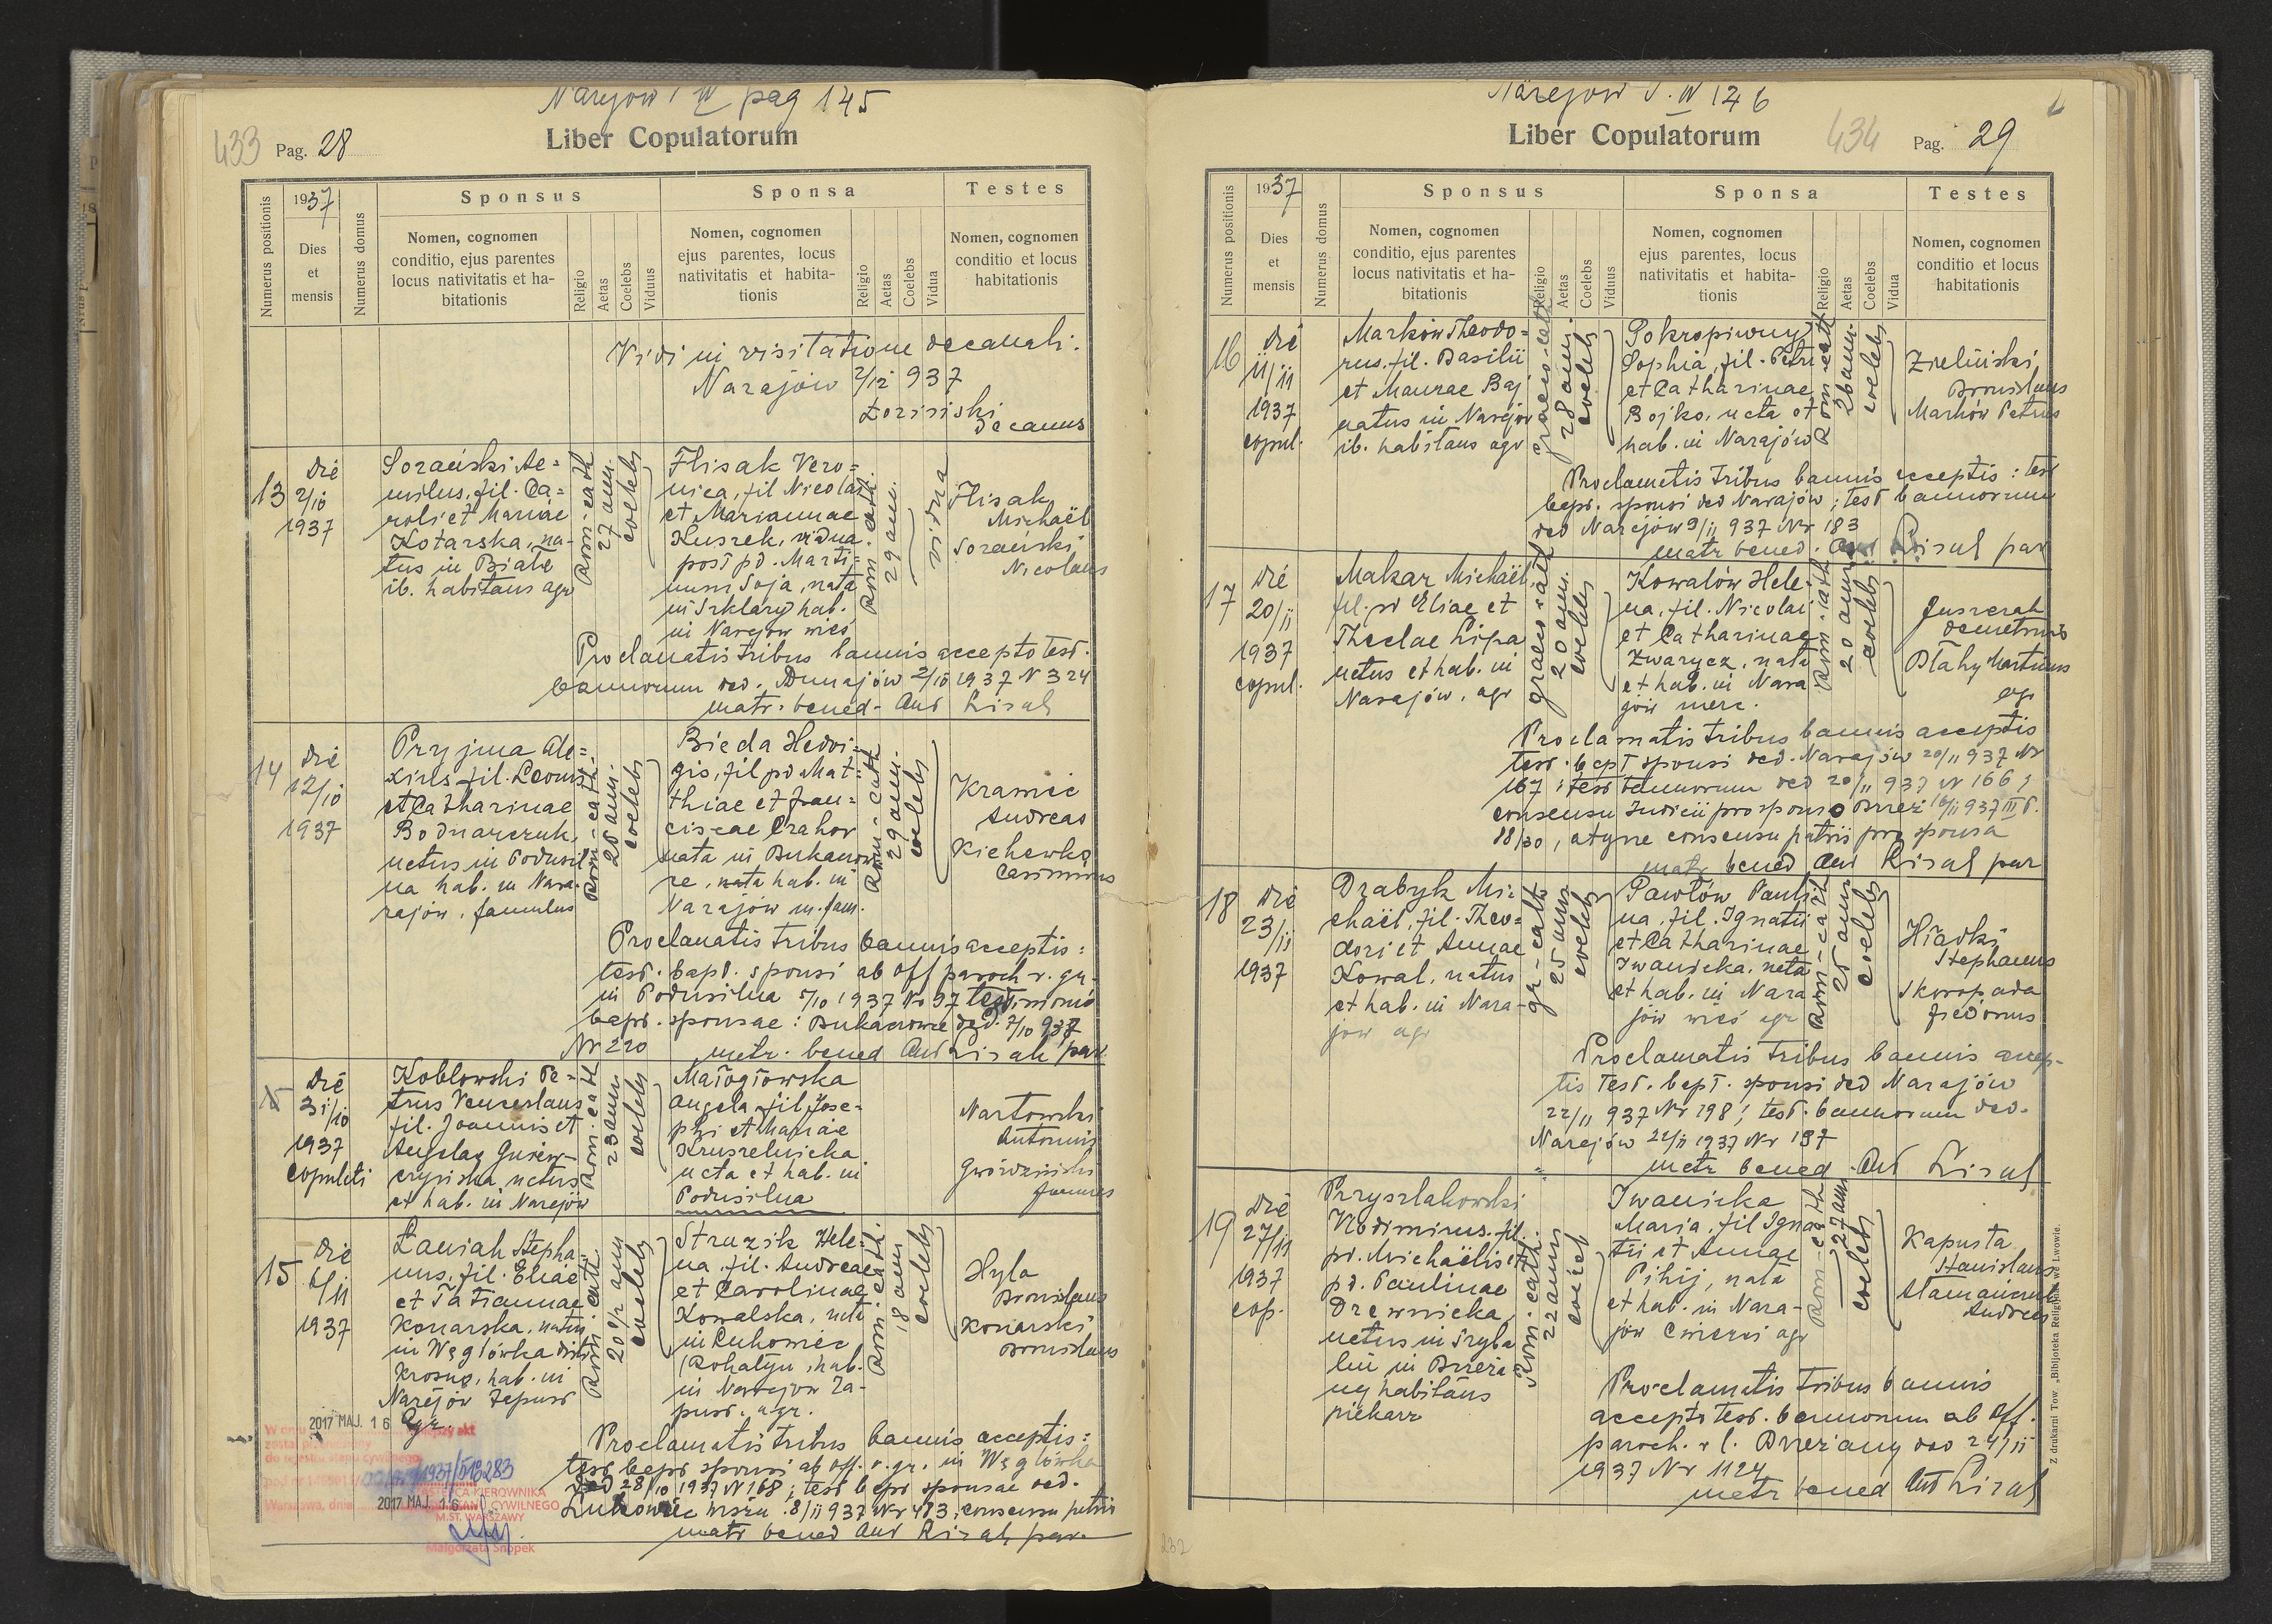 Narajów T IV pag 145
433 Pag. 28
Liber Copulatorum
Numerus positionis
1937
Dies
et
mensis
Numerus domus
Sponsus
Nomen, cognomen
conditio, ejus parentes
locus nativitatis et ha-
bitationis
Religio
Aetas
Coelebs
Viduus
Sponsa
Nomen, cognomen
ejus parentes, locus
nativitatis et habita-
tionis
Religio
Aetas
Coelebs
Vidua
Testes
Nomen, cognomen
conditio et locus
habitationis
Vidi in visitatione decanali.
Narajów 2/12 937
decanus
13
Die
2/10
1937
fil. Ca=
roli et Mariae
Kotarska, na-
tus in Białe
ib. habitans agr
Rom-cath
27 ann.
coelebs
Flisak Vero=
nica, fil Nicolai
et Mariannae
Kuszek, vidua
post pd. Marti-
num Soja, nata
in Szklary hab.
in Narajów wieś
Rom. cath.
29 ann.
vidua
Flisak
Michaël
Nicolaus
Proclamatis tribus bannis accepto test.
bannorum ded. Dunajów 2/10 1937 N 324
matr. bened. Ant Lisak
14
Die
12/10
1937
Pryjma Ale=
xius fil. Leonis
et Catharinae
Bodnarczuk,
natus in Podusil
na hab. in Nara-
rajów, famulus
Rom-cath.
25 ann.
coelebs
Bieda Hedvi=
gis, fil pd Mat=
thiae et Fran=
ciscae Czahor
nata in Bukanow
ze, nata hab. in
Narajów m. fam.
Rom-cath
29 ann.
coelebs
Kramic
Andreas
Kichewka
Casimirus
Proclamatis tribus bannis acceptis:
test. bapt. sponsi ab off paroch r. gr.
in Podusilna 5/10 1937 No 97 testimonio
bapt. sponsae: Bukaczowce ded. 7/10 937
Nr 220 matr. bened Ant Lisak par.
15
Die
31/10
1937
copulati
Koblowski Pe-
trus Venceslaus
fil. Joannis et
Angelae
natus
et hab. in Narajów
Rom. cath
23 ann
coelebs
Małogłowska
Angela, fil Jose-
phi et Mariae
Kruszelnicka
nata et hab. in
Podusilna
Nartowski
Antonius
Gwóździński
Joannes
15
Die
6/11
1937
Laniak Stepha-
nus, fil. Eliae
et Tatiannae
Konarska, natus
in Węglówka distr
Krosno, hab. in
Narajów Zapust
Agr.
Rom cath
20 1/2 ann
coelebs
Struzik Hele=
na, fil. Andreae
et Carolinae
Kowalska, nata
in Łukowiec
(Rohatyn, hab.
in Narajów Za-
pust. agr.
Rom. cath.
18 ann
coelebs
Hyla
Bronislaus
Konarski
Bronislaus
Proclamatis tribus bannis acceptis:
test. bapt sponsi ab off. r. gr. in Węglówka
Ded 28/10 1937 N 168; test bapt sponsae ded.
Łukowiec 8/11 937 Nr 483, consensu patris
matr bened Ant Lisak par.
2017 MAJ. 1 6
W dniu
1937/513283
2017 MAJ. 1 6
Warszawa, dnia
ZASTĘPCA KIEROWNIKA
URZĘDU STANU CYWILNEGO
M.ST. WARSZAWY
Małgorzata Snopek
Narajów T. IV 146
Liber Copulatorum
434 Pag. 29
Numerus positionis
1937
Dies
et
mensis
Numerus domus
Sponsus
Nomen, cognomen
conditio, ejus parentes
locus nativitatis et ha-
bitationis
Religio
Aetas
Coelebs
Viduus
Sponsa
Nomen, cognomen
ejus parentes, locus
nativitatis et habita-
tionis
Religio
Aetas
Coelebs
Vidua
Testes
Nomen, cognomen
conditio et locus
habitationis
16
Die
11/11
1937
copul.
Markow Theodo=
rus, fil. Basilii
et Maurae Baj
natus in Narajów
ib. habitans agr
graeco-cath
28 ann.
coelebs
Pokropiwnyj
Sophia, fil. Petri
et Catharinae
Bojko, nata et
hab. in Narajów
Rom-cath
26 ann.
coelebs
Zieliński
Bronislaus
Markow Petrus
Proclamatis tribus bannis acceptis: test
bapt. sponsi ded Narajów; test bannorum
ded Narajów 9/11 937 Nr 183
matr bened. Ant Lisak par
17
Die
20/11
1937
copul.
Makar Michaël,
fil. pd Eliae et
Theclae Lipa
natus et hab. in
Narajów, agr
graeco-cath
20 ann.
coelebs
Kowalów Hele-
na, fil. Nicolai
et Catharinae
Zwarycz, nata
et hab. in Nara
jów merc.
Rom-cath
20 ann
coelebs
Juszczak
Demetrius
Błahy Martinus
agr
Proclamatis tribus bannis acceptis
test. bapt sponsi ded. Narajów 20/11 937 Nr
167; test bannorum ded 20/11 937 N 166;
consensu Judicii pro sponso Brzeż 16/11 937 III P.
88/30, atque consensu patris pro sponsa
matr bened Ant Lisak par
18
Die
23/11
1937
Drabyk Mi-
chaël, fil. Theo=
dori et Annae
Kowal, natus
et hab. in Nara-
jów agr
gr-cath
25 ann
coelebs
Pawłów Pauli
na, fil. Ignatii
et Catharinae
Iwanicka, nata
et hab. in Nara
jów wieś agr
Rom-cath
25 ann
coelebs
Hładki
Stephanus
Skoropada
Fiedorus
Proclamatis tribus bannis accep-
tis test. bapt. sponsi ded Narajów
22/11 937 Nr 198; test. bannorum ded.
Narajów 22/11 1937 Nr 197
matr bened Ant Lisak
19
Die
27/11
1937
cop.
Przyszlakowski
Vlodimirus, fil.
pd. Michaëlis et
pd. Paulinae
Drewnicka,
natus in Szyba
lin in Brzeża
ny habitans
piekarz
Rom. cath.
22 ann
coelebs
Iwanicka
Maria, fil Igna
tii et Annae
Pihij, nata
et hab. in Nara-
jów agr
Rom-cath
27 ann
coelebs
Kapusta
Stanislaus
Andreas
Proclamatis tribus bannis
accepto test. bannorum ab off.
paroch. r l. Brzeżany ded 24/11
1937 Nr 1124
matr bened Ant Lisak
232
Z drukarni Tow. „Bibljoteka Religijna" we Lwowie.